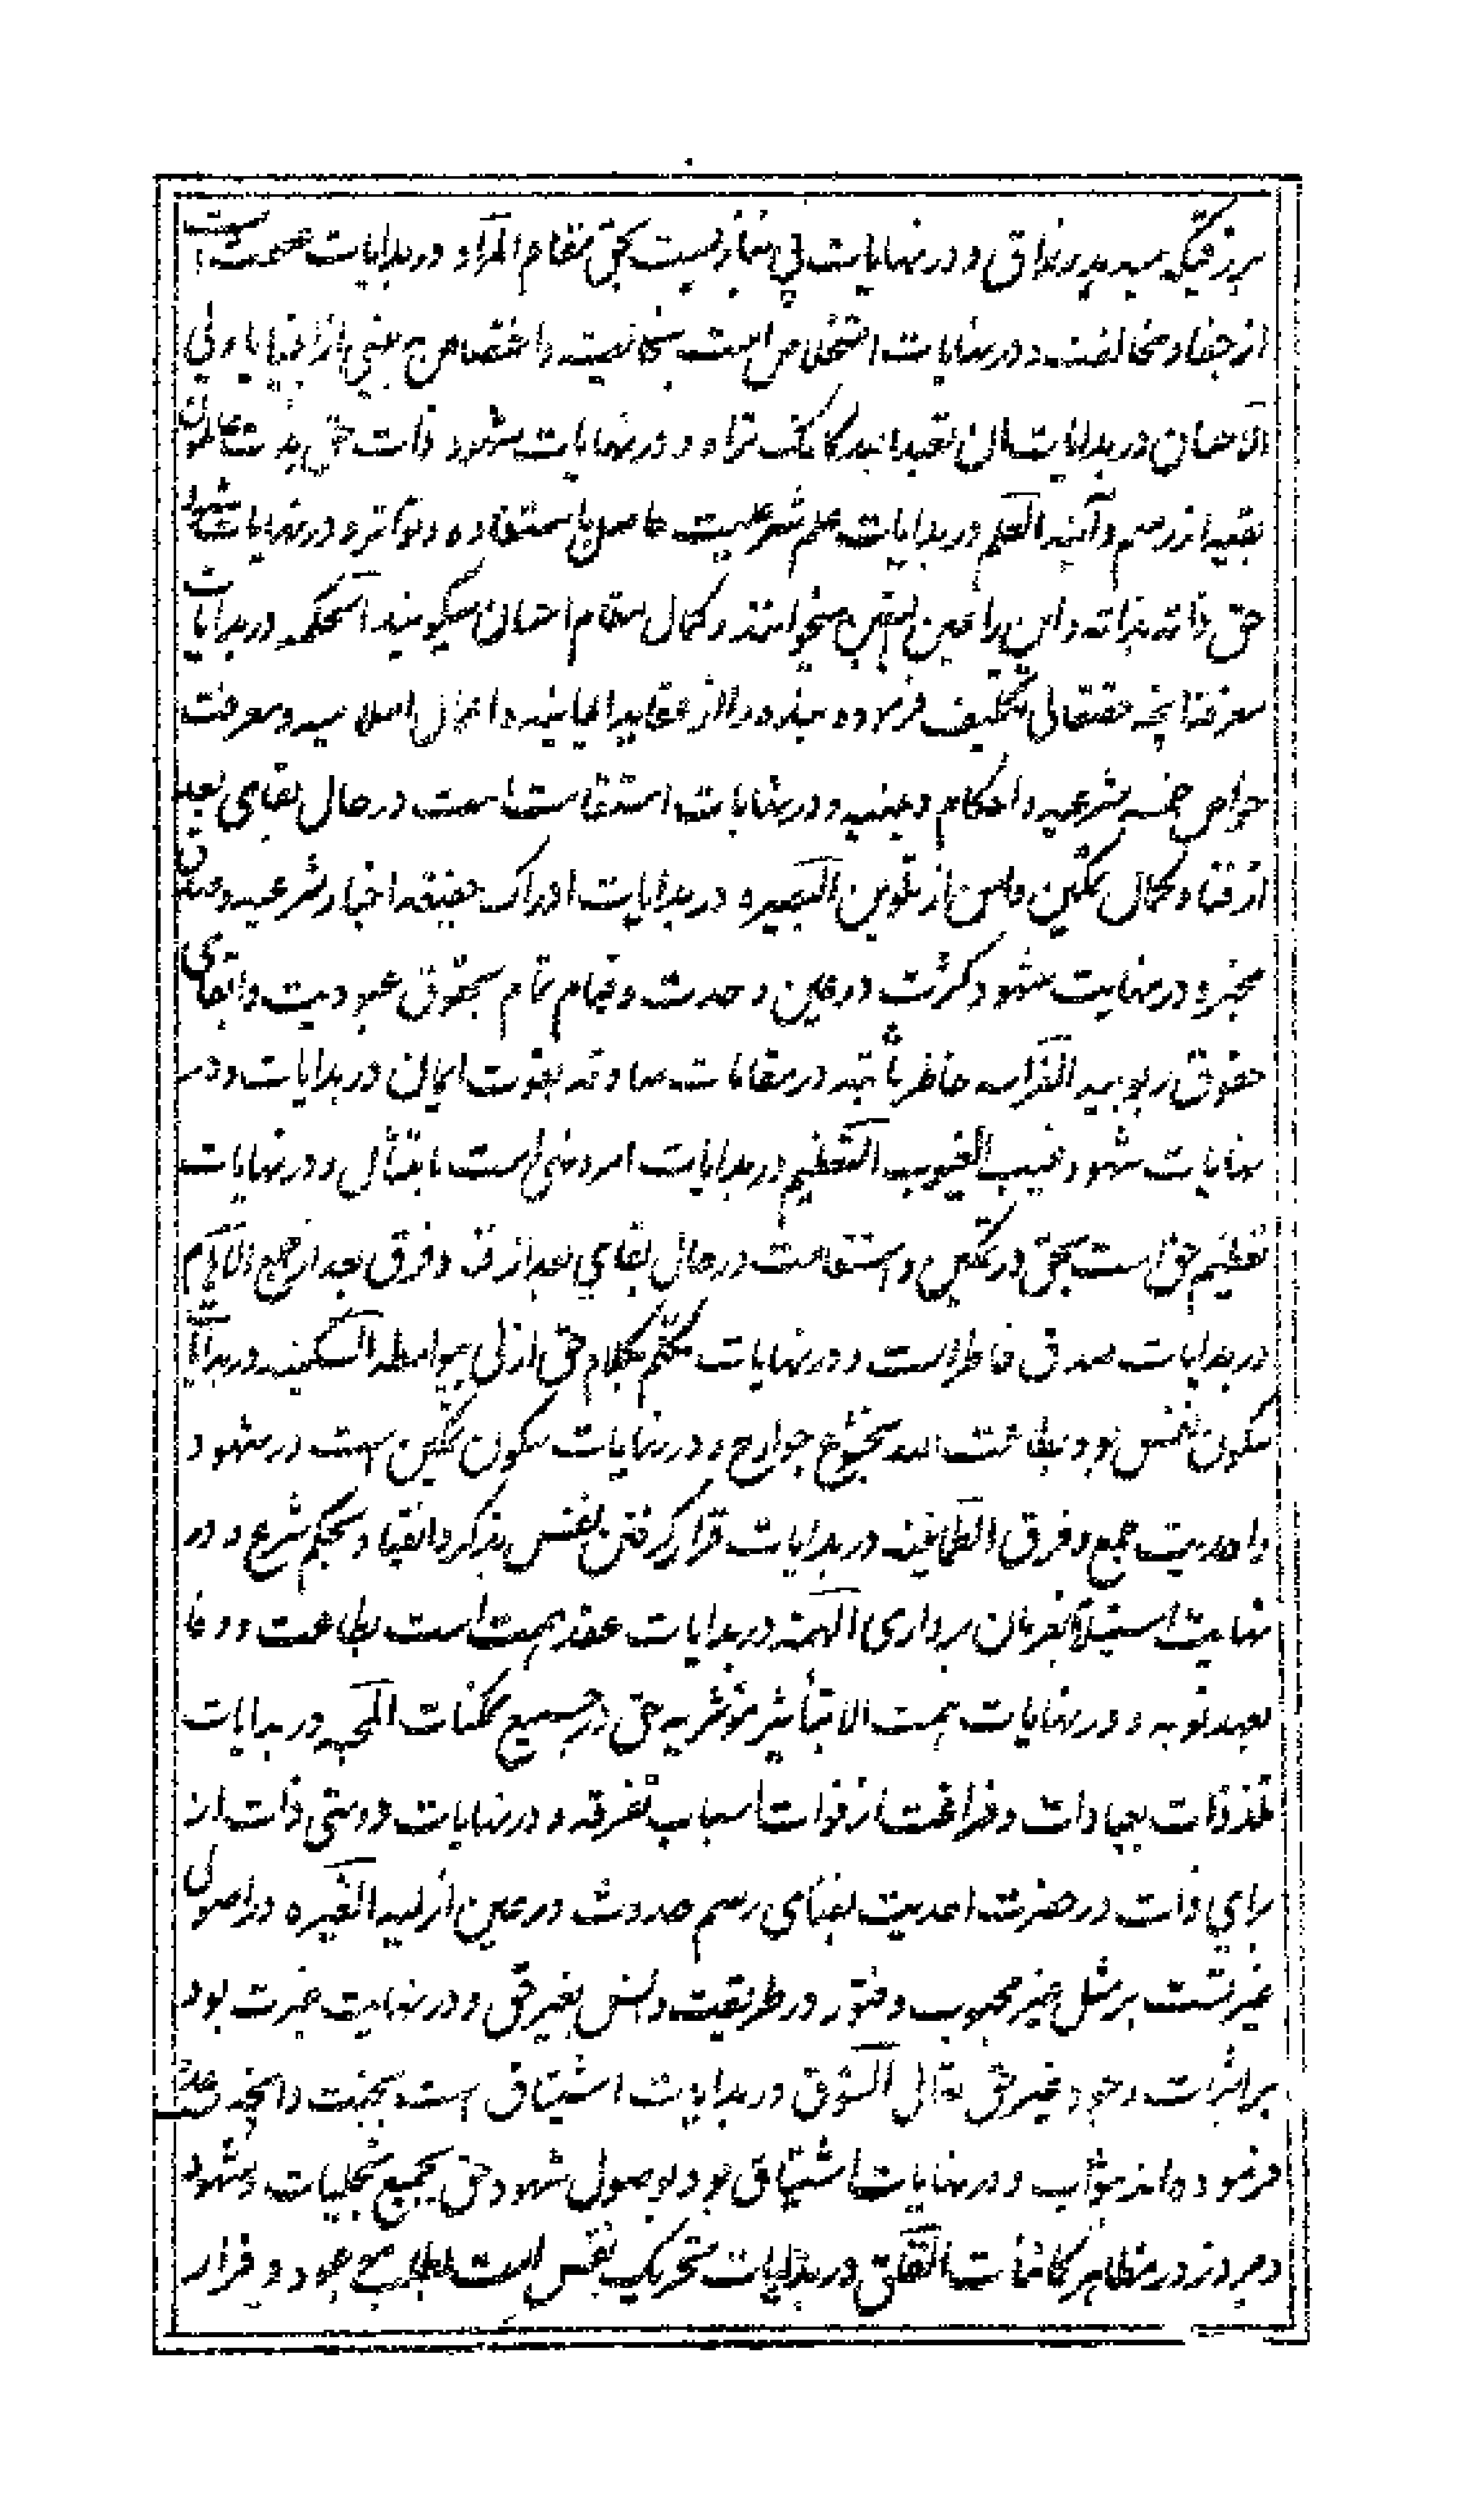 برزقیکه میدهد رزاق و در نهایات بی نیازیست بحق مقام المراد در بدایات عصمت است
از جفا و مخالفت و در نهایات استخلاص است بخالصیت و اختصاص
الاحسان در بدایات ان تعبد الله کانک تراه و در نهایات شهود ذات حق بذات بدون
بقیه از رسم و آنیه العلم در بدایات علم شرعیت حاصل باستفاده و تواتر و در نهایات شهود
حق ذاته بذاته و این را عین الیقین میخوانند و کمال مقام احسان میگویند الحکمه در بدایات
معرفة انچه حقتعالی تکلیف فرموده بنده را از عقاید ایمانیه و اعمال اسلامیه و معرفت
خواص خمسه شرعیه و احکام دینیه و در نهایات استقامت است در حال بقای بعد
از فنا و کمال تمکین و امن از تلوین البصیره در بدایات ادراک حقیقه اخبار شرعیه و صدق
مخبر و در نهایت شهود کثرت در عین وحدت و قیام تمام بحقوق عبودیت و ابقای
حقوق ربوبیه الفراسه خاطر باشد در مقامات صادقه بقوت ایمان در بدایات و در
نهایات شهود غیب الغیوب التعظیم در بدایات امر و نهی است بامتثال و در نهایات
تعظیم حق است بحق در تمکین و استقامت در حال بقای بعد از فنا و فرق بعد از جمع الالهام
در بدایات صدق خاطر است و در نهایات تکلم بکلام حق ازلی بیواسطه السکینه در بدایات
سکون نفس بود بطاعت الله بخشوع جوارح و در نهایات سکون تمکین است در شهود
واحدیت جمع و فرق الطمانینه در بدایات قرار گرفتن نفس بذکر و انقیاد بحکم شرع و در
نهایت استیلا بفرمان برداری الهمة در بدایات عقد همت است بطاعت و وفا
بعهد توبه و در نهایات همت الا بتأثیر مؤثریه حق در جمیع ممکنات المحبه در بدایات
تلذذات بعبادات و فراغت از فوات اسباب تفرقه و در نهایات دوستی ذات از
برای ذات در حضرت احدیت بفنای رسم حدوث در عین ازلیه الغیره در اصول
غیرتست بر مثل غیر محبوب و فتور در طریقت و انس بغیر حق و در نهایت غیرت بود
بر اثبات وجود غیر حق تعالی الشوق در بدایات اشتیاق است بجنت و انچه وعده
فرموده اند بثواب و در نهایات اشتیاق بود بوصول شهود حق بجمیع تجلیات و شهود
و بروز در مظاهر کائنات القلق در بدایات تحریک نفس است بطلب موعود و فرار